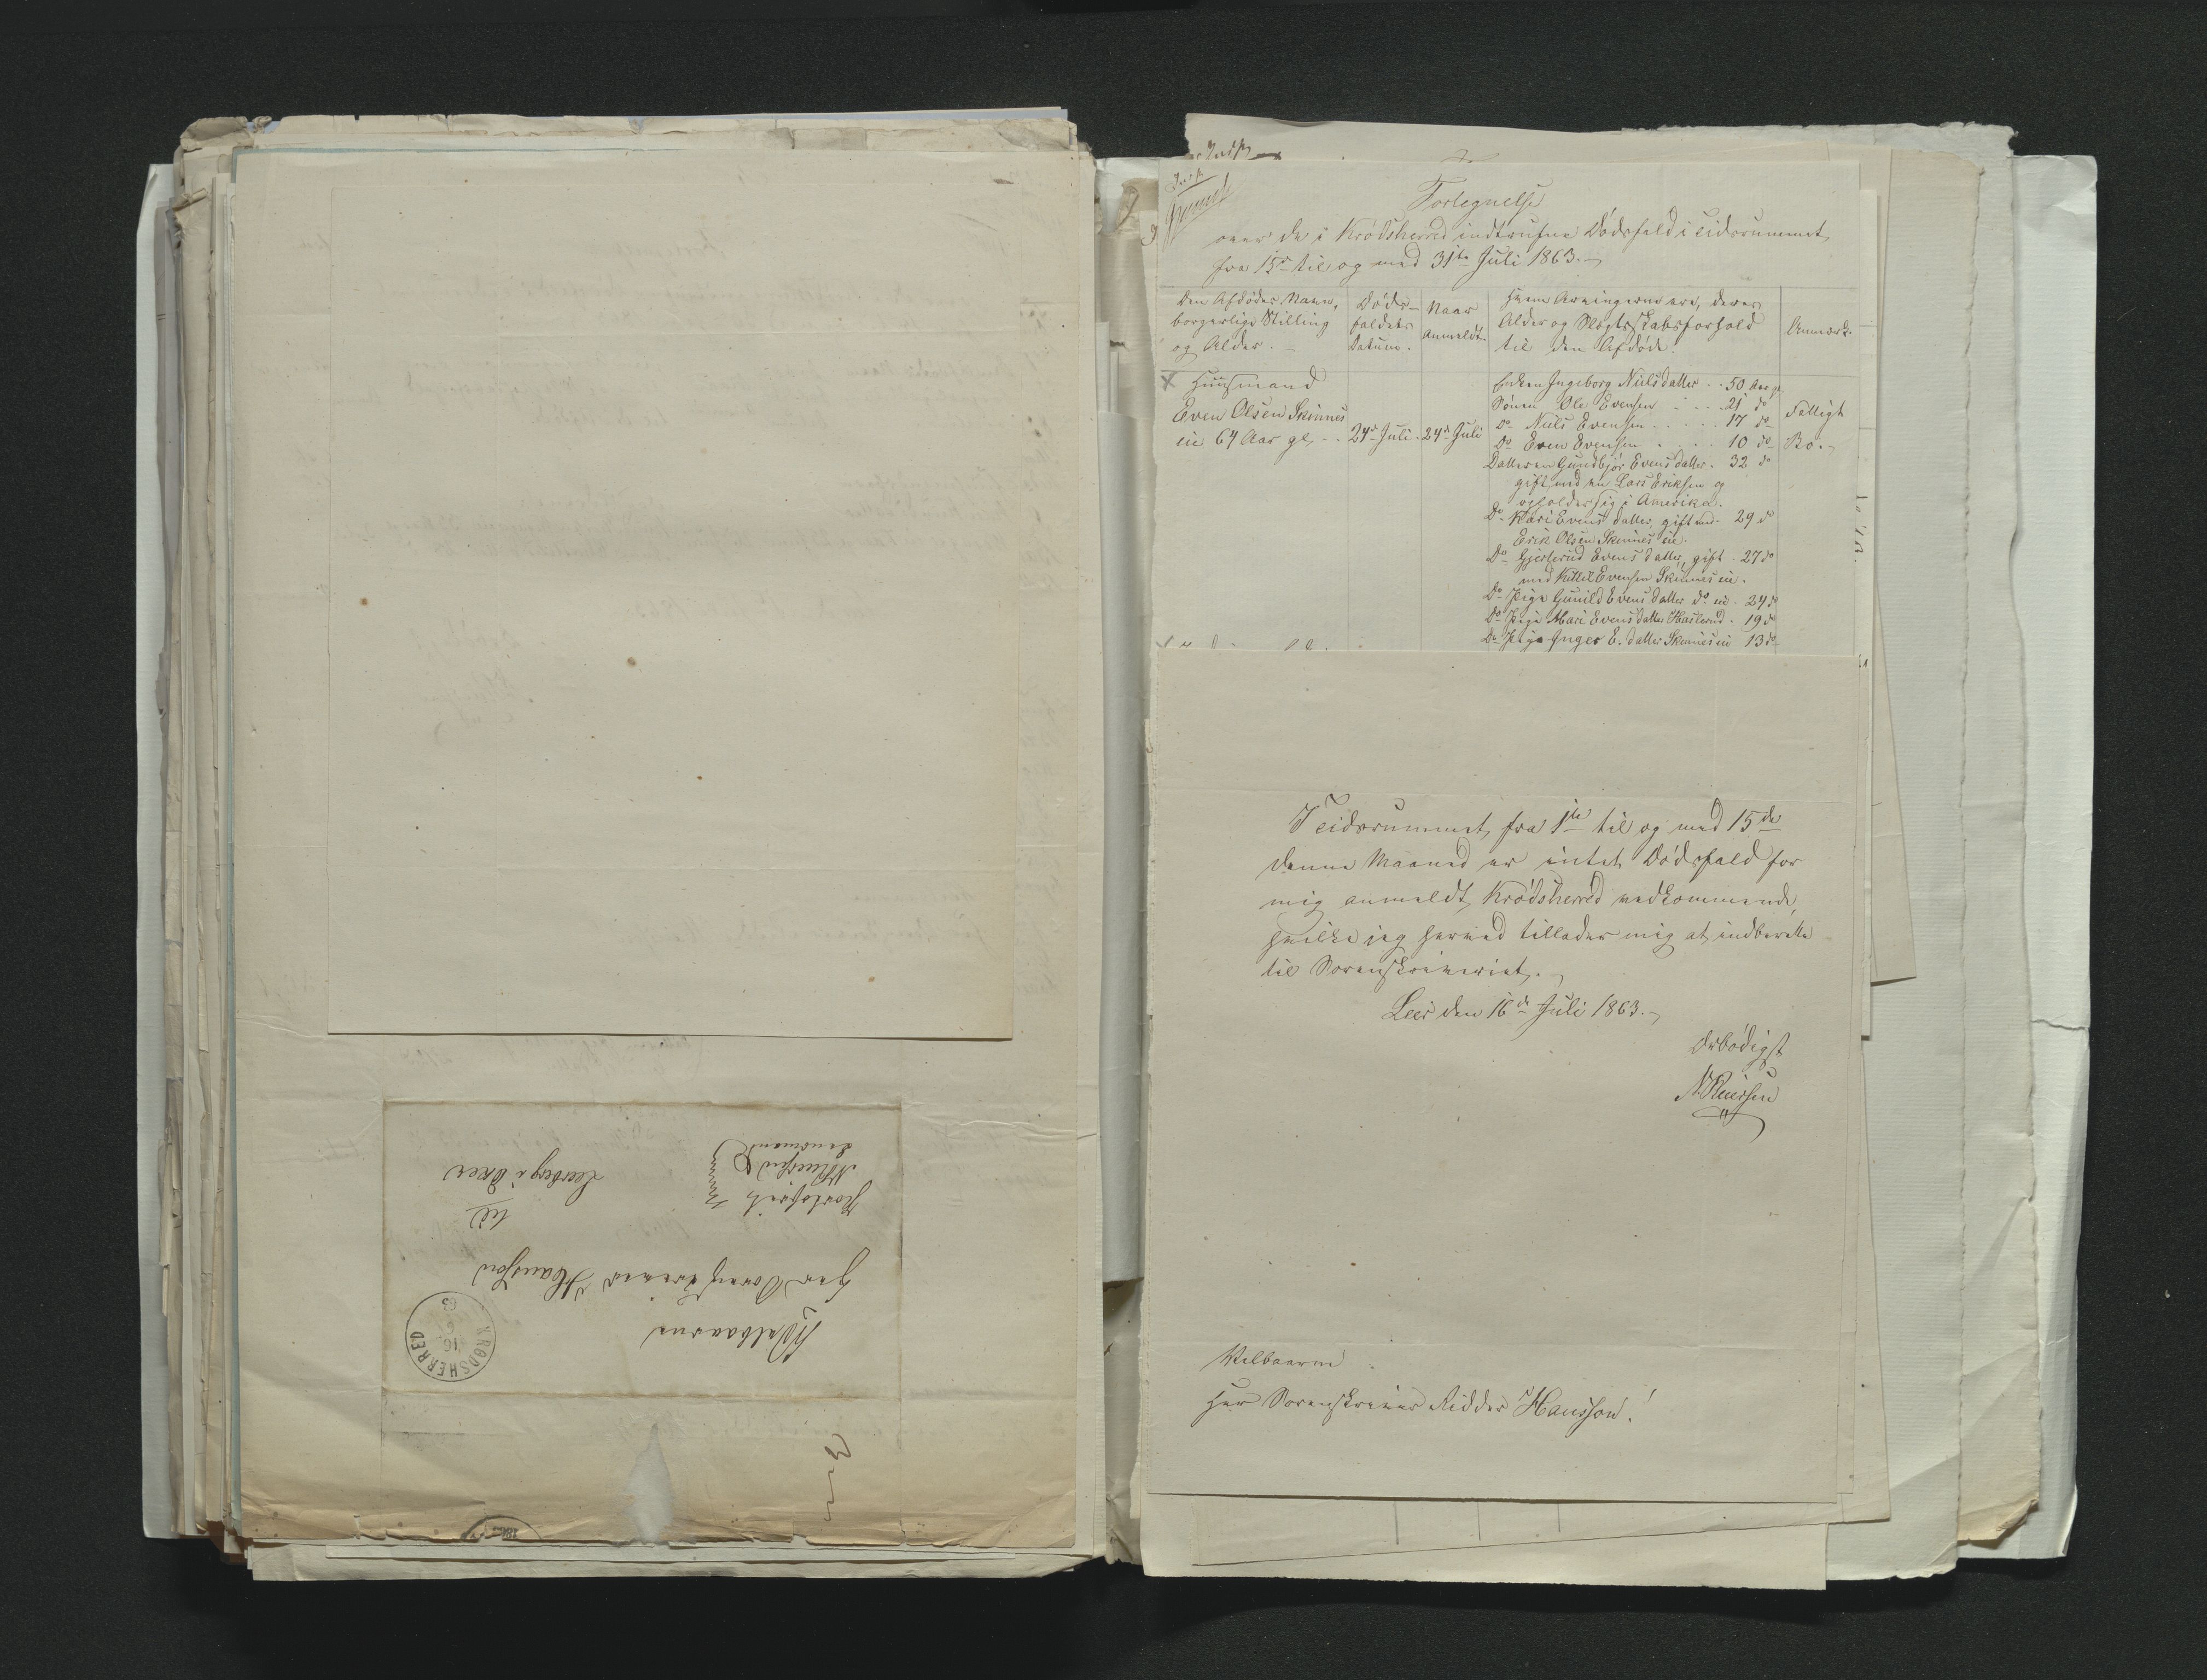 Velbaarne
Herr Sorenskriver Hansson
til
Leerberg i Eker
Portofrit
Lensmand
KRØDSHERRED
16
63
Fortegnelse
over de i Krødsherred indtrufne Dødsfald i Tidsrummet
fra 15de til og med 31te Juli 1863.
Den Afdødes Navn,
borgerlige Stilling
og Alder.
Døds-
faldets
Datum.
Naar
Anmeldt
Hvem Arvingerne ere, deres
Alder og Slægtskabsforhold
til den Afdøde.
Anmærk.
Huusmand
Even Olsen Skinnes
eie 64 Aar gl.
24de Juli
24de Juli
Enken Ingeborg Nielsdatter 50 Aar gl.
Sønen Ole Evensen 21 do
Do Niels Evensen 17 do
Do Even Evensen 10 do
Datteren Gundbjør Evensdatter 32 do
gift med en Lars Eriksen og
opholder sig i Amerika.
Do Kari Evensdatter, gift med 29 do
Erik Olsen Skinnes eie.
Do Gjertrud Evensdatter, gift 27 do
med Kittil Evensen Skinnes eie.
Do Pige Gunild Evensdatter do eie 24 do
Do Pige Mari Evensdatter Haslerud 19 do
Do Pige Inger E.datter Skinnes eie 13 do
Fattigt
Bo.
I Tidsrummet fra 1ste til og med 15de
denne Maaned er intet Dødsfald for
mig anmeldt, Krødsherred vedkommende,
hvilke jeg herved tillader mig at indberette
til Sorenskriveriet.
Leer den 16de Juli 1863.
Ærbødigst
Velbaarne
Herr Sorenskriver Ridder Hansson!